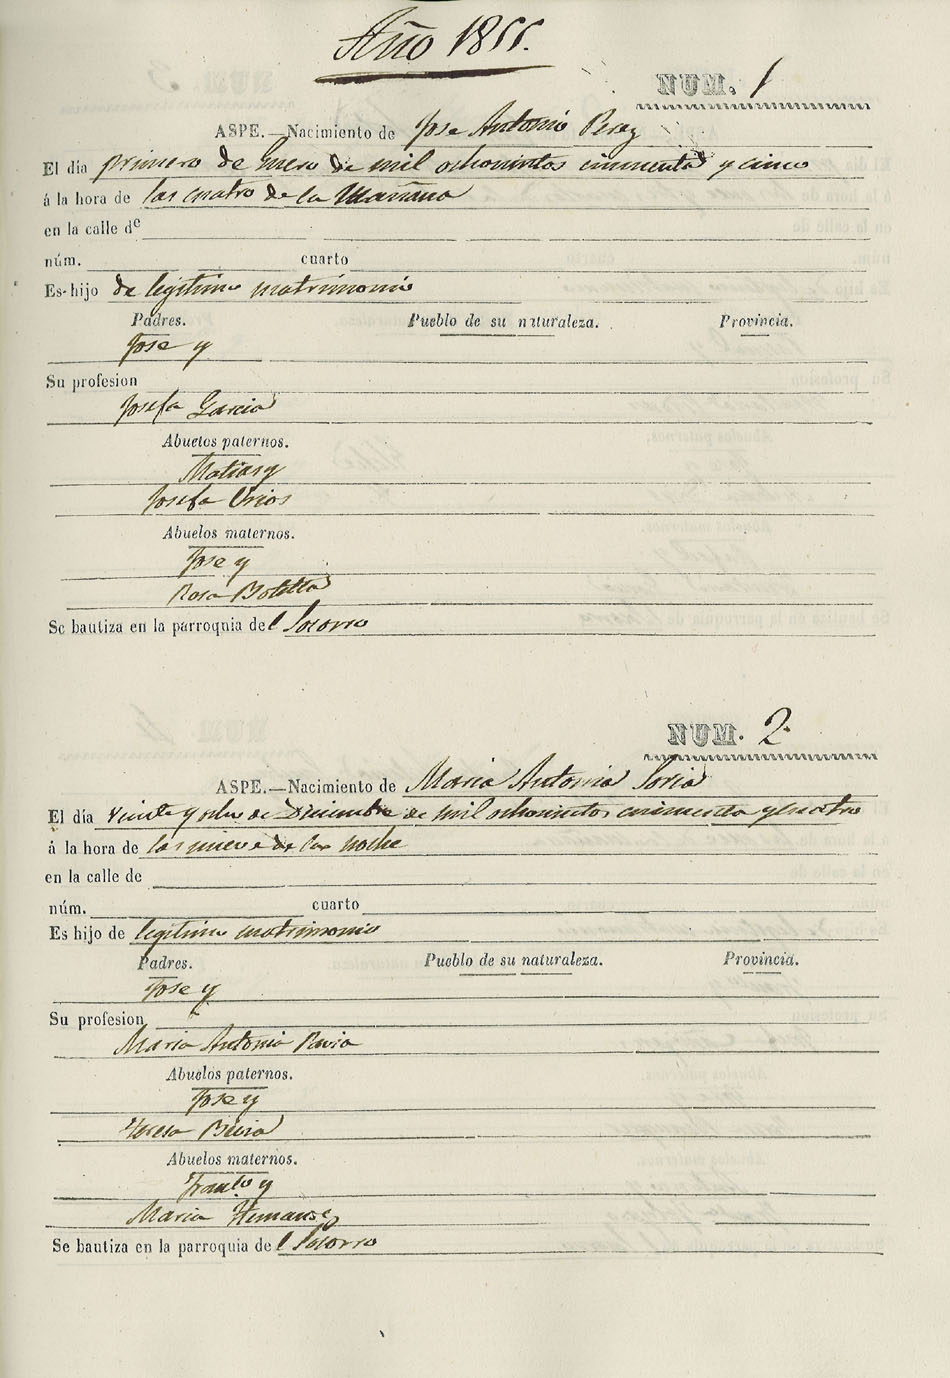 Año 1855.
NUM. 1
ASPE.—Nacimiento de Jose Antonio Perez
El día primero de Enero de mil ochocientos cincuenta y cinco
á la hora de las cuatro de la Mañana
en la calle de
núm. cuarto
Es hijo de legitimo matrimonio
Padres. Pueblo de su naturaleza. Provincia.
Jose y
Su profesion
Josefa Garcia
Abuelos paternos.
Matias y
Josefa Urios
Abuelos maternos.
Jose y
Rosa Botella
Se bautiza en la parroquia del Socorro
NUM. 2
ASPE.—Nacimiento de Maria Antonia Soria
El día veinte y ocho de Diciembre de mil ochocientos cincuenta y cuatro
á la hora de las nueve de la noche
en la calle de
núm. cuarto
Es hijo de legitimo matrimonio
Padres. Pueblo de su naturaleza. Provincia.
Jose y
Su profesion
Maria Antonia
Abuelos paternos.
Jose y
Teresa
Abuelos maternos.
Franco y
Maria
Se bautiza en la parroquia del Socorro